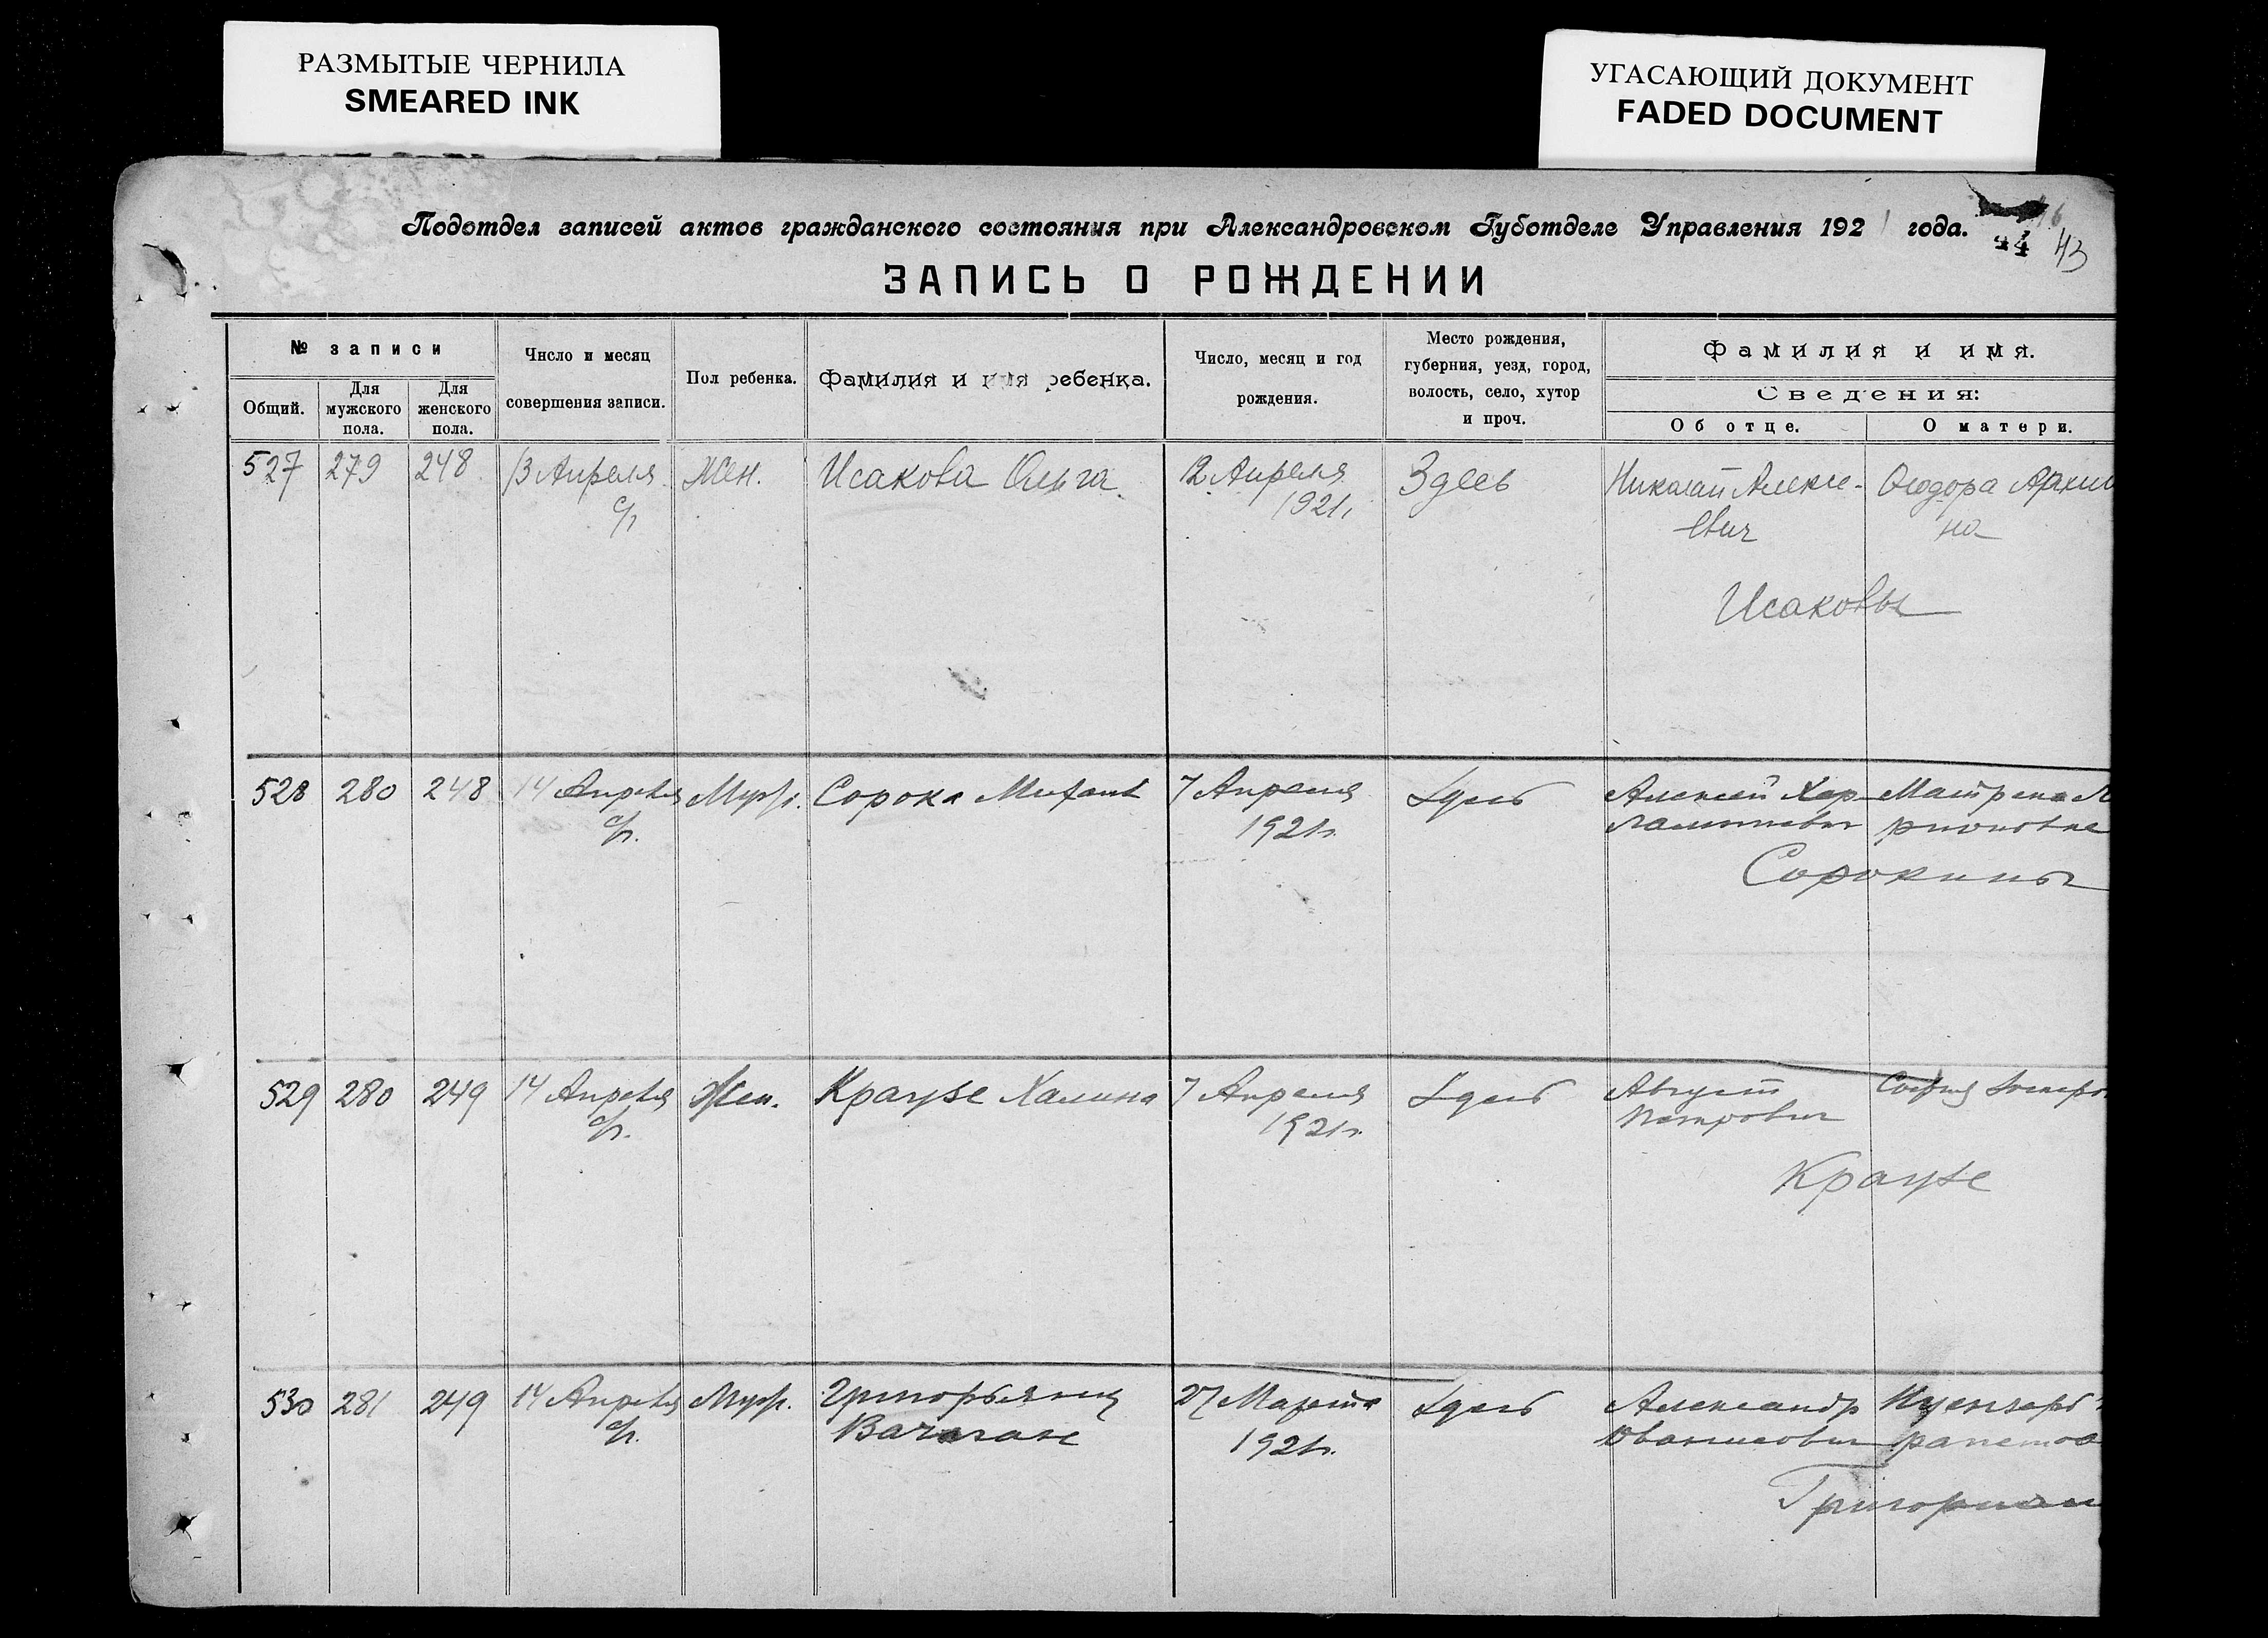 РАЗМЫТЫЕ ЧЕРНИЛА
SMEARED INK
УГАСАЮЩИЙ ДОКУМЕНТ
FADED DOCUMENT
Подотдел записей актов гражданского состояния при Александровском Губотделе Управления 1921 года.
44 43
ЗАПИСЬ О РОЖДЕНИИ
№ записи
Общий.
Для мужского пола.
Для женского пола.
Число и месяц совершения записи.
Пол ребенка.
Фамилия и имя ребенка.
Число, месяц и год рождения.
Место рождения, губерния, уезд, город, волость, село, хутор и проч.
Фамилия и имя.
Сведения:
Об отце.
О матери.
527 279 248 13 Апреля Жен. Исакова Ольга 12 Апреля Здесь Николай Алексе- Феодора
с/г 1921г евич на
Исаковы
528 280 248 14 Апреля Муж. Сорока Михаил 7 Апреля Здесь Алексей Хар- Матрена
с/г. 1921г. лампиевич
Сорокины
529 280 249 14 Апреля Жен. Краузе Халина 7 Апреля Здесь Август София
с/г. 1921г. Петрович
Краузе
530 281 249 14 Апреля Муж. Григорьянц 27 Марта Здесь Александр
с/г. Вачаган 1921г. Иванесович